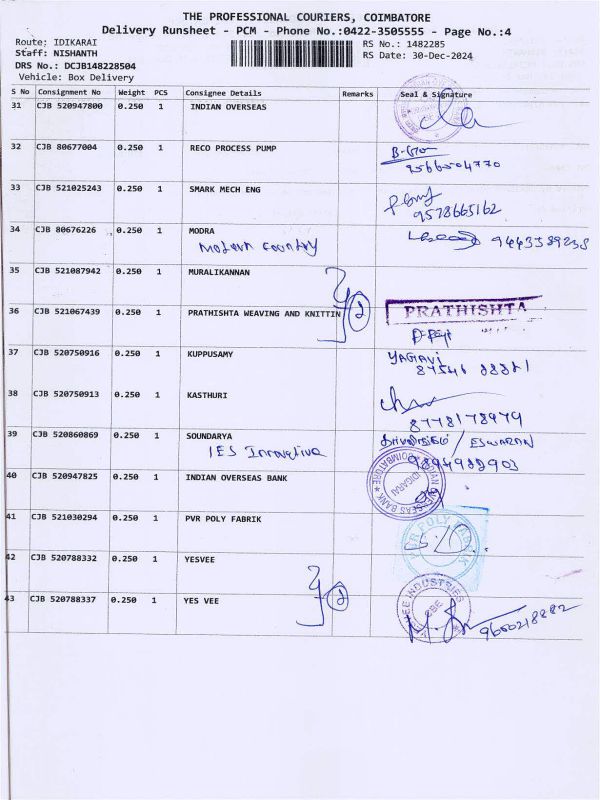 THE PROFESSIONAL COURIERS, COIMBATORE
Delivery Runsheet - PCM - Phone No.:0422-3505555 - Page No.:4
Route: IDIKARAI
RS No.: 1482285
Staff: NISHANTH
RS Date: 30-Dec-2024
DRS No.: DCJB148228504
Vehicle: Box Delivery
S No Consignment No Weight PCS Consignee Details Remarks Seal & Signature
31 CJB 520947800 0.250 1 INDIAN OVERSEAS
32 CJB 80677004 0.250 1 RECO PROCESS PUMP
9566504770
33 CJB 521025243 0.250 1 SMARK MECH ENG
9578665162
34 CJB 80676226 0.250 1 MODRA
Modern Country
35 CJB 521087942 0.250 1 MURALIKANNAN
36 CJB 521067439 0.250 1 PRATHISHTA WEAVING AND KNITTIN 2 PRATHISHTA
37 CJB 520750916 0.250 1 KUPPUSAMY
38 CJB 520750913 0.250 1 KASTHURI
8778178979
39 CJB 520860869 0.250 1 SOUNDARYA / ESWARAN
IES Innovative 9894982903
40 CJB 520947825 0.250 1 INDIAN OVERSEAS BANK
INDIAN OVERSEAS BANK COIMBATORE IDIGARAI
41 CJB 521030294 0.250 1 PVR POLY FABRIK
PVR POLY FABRIK
42 CJB 520788332 0.250 1 YESVEE
43 CJB 520788337 0.250 1 YES VEE 2
INDUSTRIES CBE
9600218882